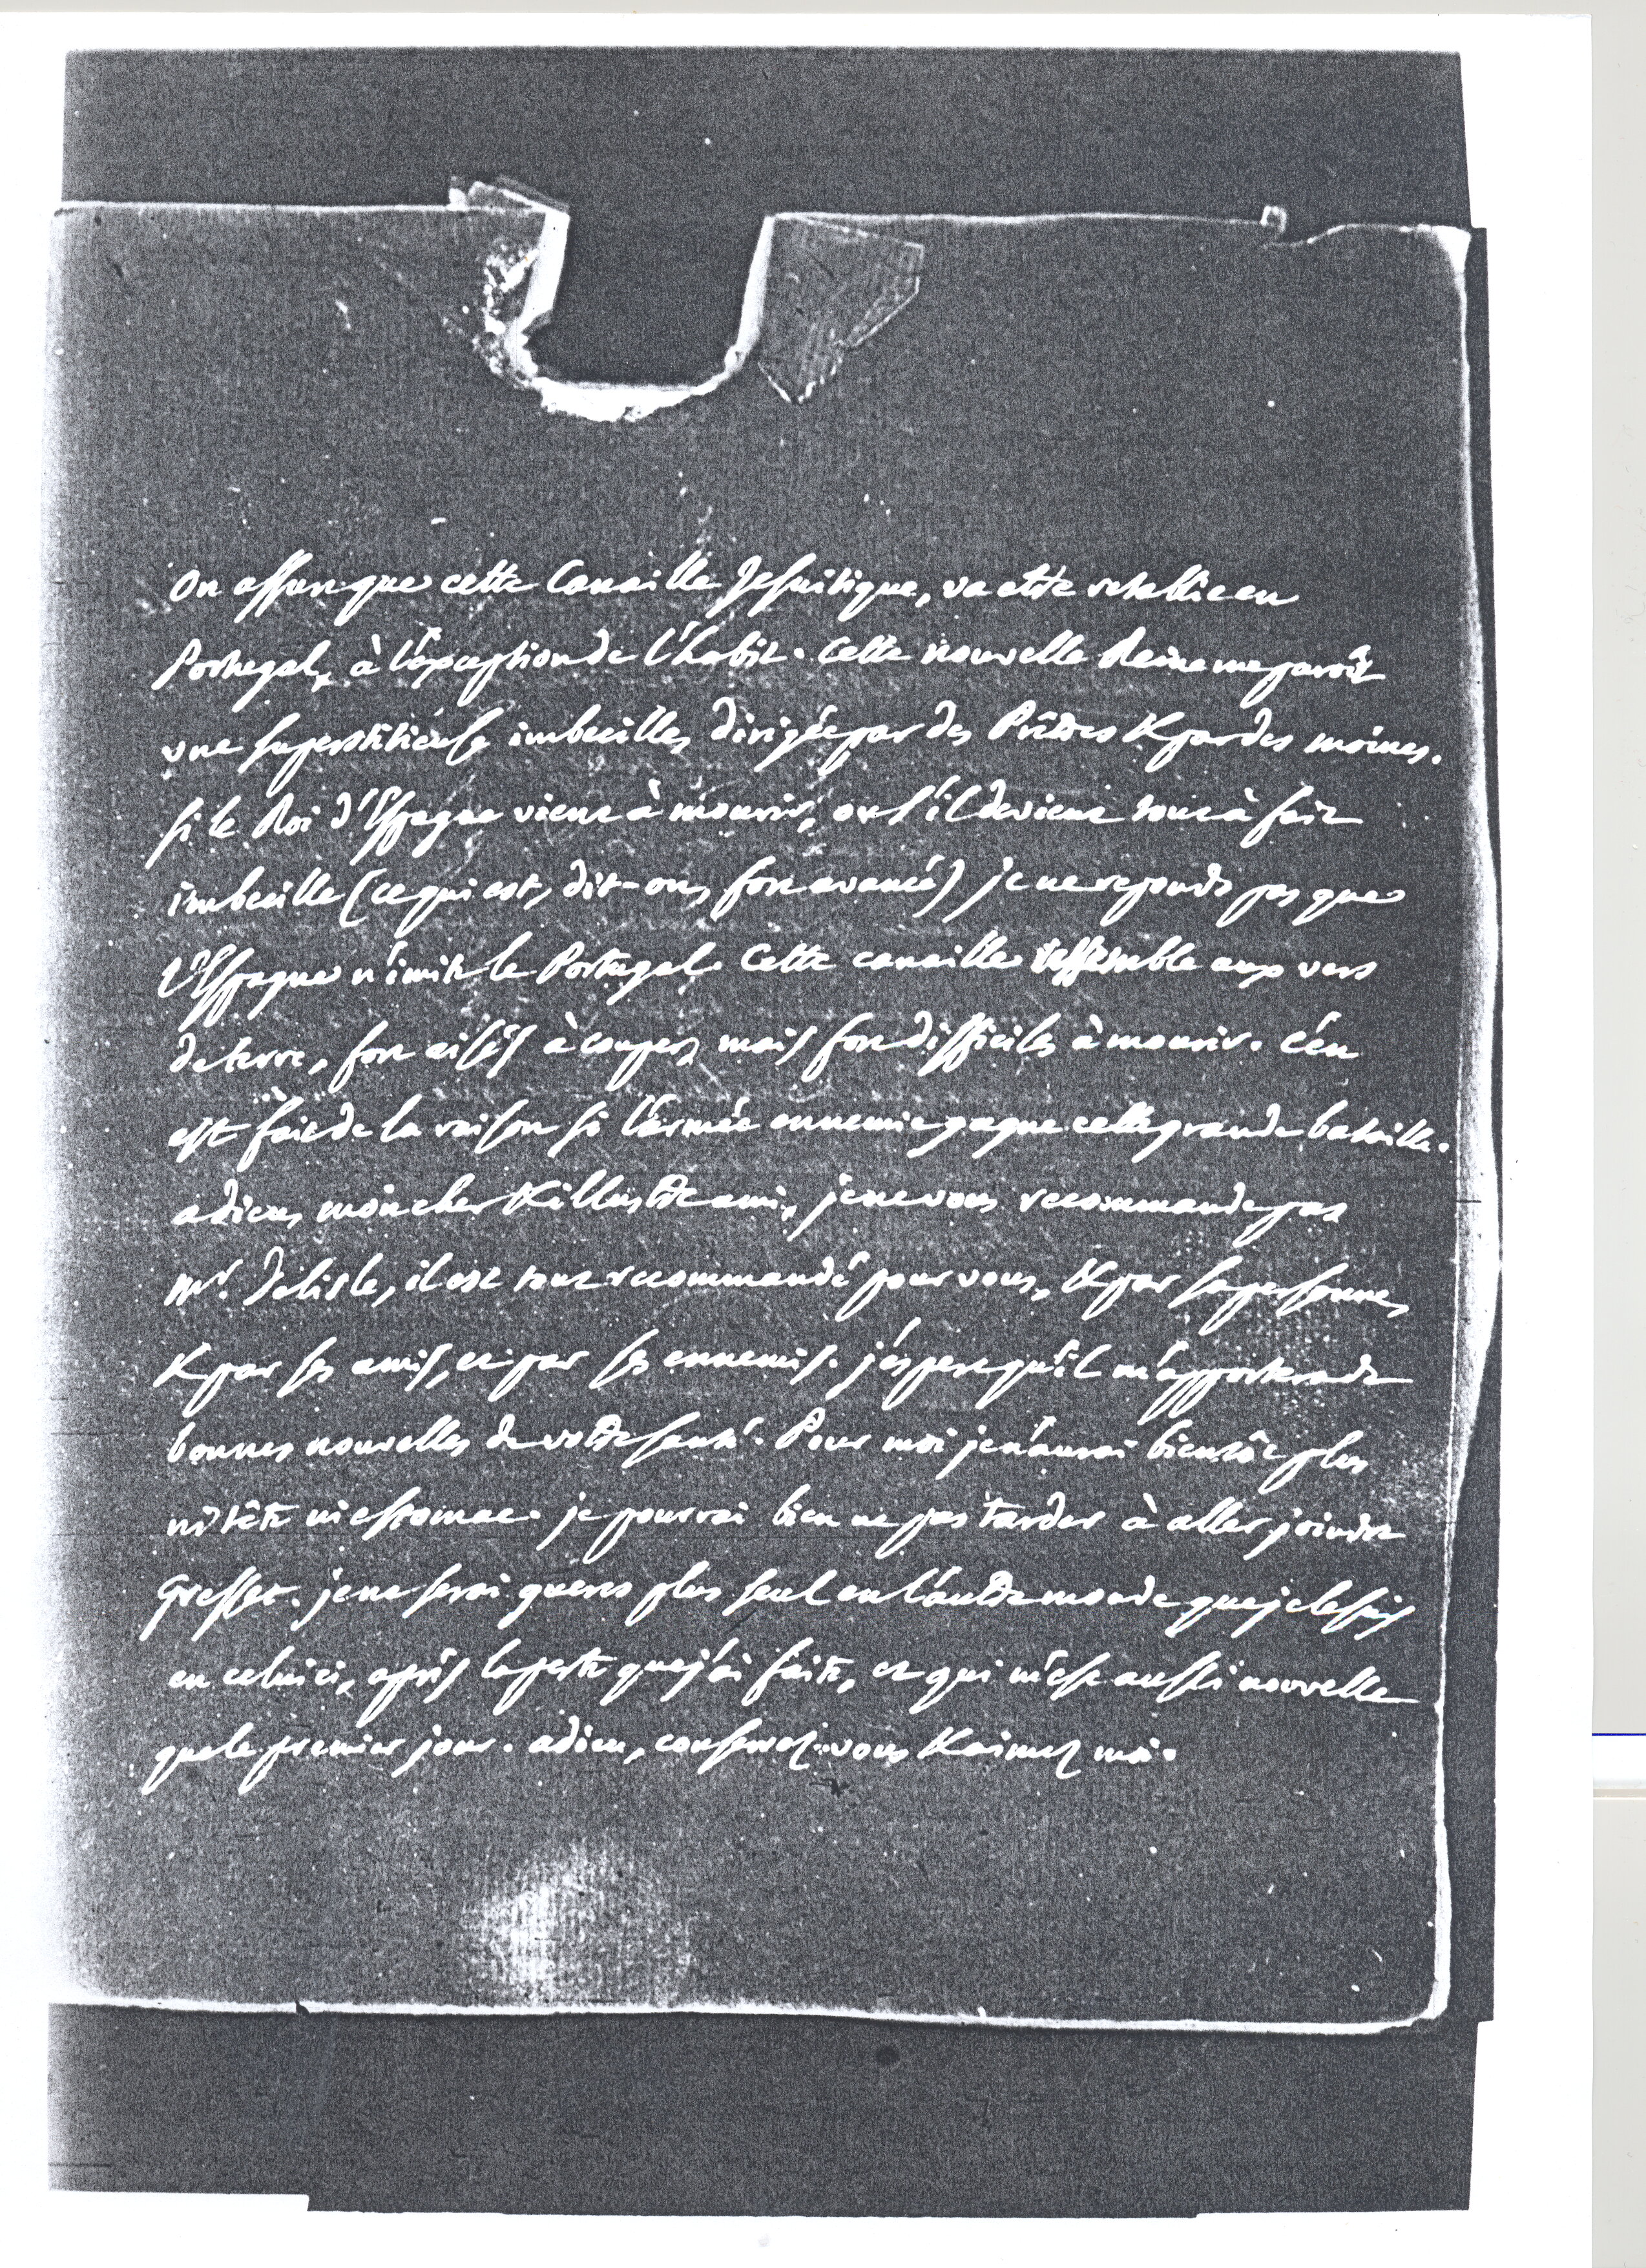 On assure que cette Canaille Jesuitique, va etre retablie en
Portugal, à l'exception de l'habit. Cette nouvelle Reine me paroît
une superstitieuse imbecille, dirigée par des Prêtres & par des moines.
si le Roi d'Espagne vient à mourir, ou s'il devient tout à fait
imbecille (ce qui est, dit-on, fort avancé) je ne reponds pas que
l'Espagne n'imite le Portugal. Cette canaille ressemble aux vers
de terre, fort aisés à couper, mais fort difficiles à mourir. C'en
est fait de la raison si l'armée ennemie gagne cette grande bataille.
adieu, mon cher & illustre ami, je ne vous recommande pas
Mr. Delisle, il est tout recommandé pour vous, & par sa personne,
& par ses amis, et par ses ennemis. j'espere qu'il m'apportera de
bonnes nouvelles de votre santé. Pour moi je n'aurai bientôt plus
ni tête ni estomac. je pourrai bien ne pas tarder à aller joindre
Gresset. je ne serai gueres plus seul en l'autre monde que je le suis
en celui ci, après la perte que j'ai faite, et qui m'est aussi nouvelle
que le premier jour. adieu, conservez-vous & aimez moi.